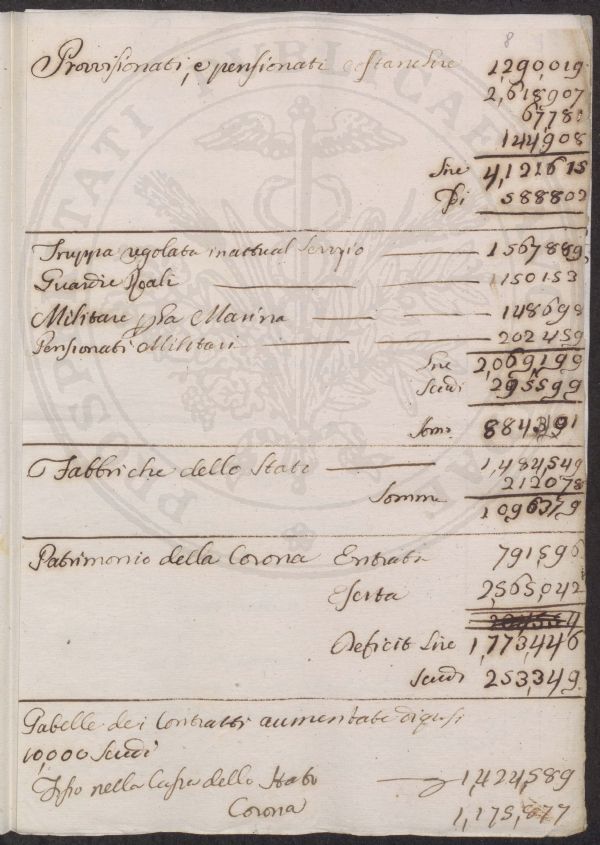 8
Provvisionati, e pensionati costano lire 1,290,019
2,618,907
67780
144,908
Lire 4,121615
Di 588802
Truppa regolata in attual servizio 1567889
Guardie Reali 1150153
Militare p la Marina 148698
Pensionati Militari 202459
Lire 2,069199
Scudi 295599
Som: 884391
Fabbriche dello Stato 1,484,549
212078
Somma 1096379
Patrimonio della Corona Entrata 791596
Escita 2,565,042
Deficit Lire 1,773,446
Scudi 253,349
Gabelle dei Contratti aumentate di quasi
10,000 Scudi
nella Cassa dello Stato 1,424,589
Corona 1,175,877
PROSPERITATI PUBLICAE